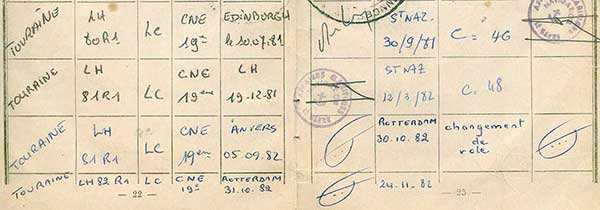 TOURAINE LH 80R1 LC CNE 19è EDINBURGH le 10.07.81 ST NAZ 30/9/81 C = 46
TOURAINE LH 81R1 LC CNE 19ème LH 19-12-81 ST NAZ 12/3/82 C = 48
TOURAINE LH 81R1 LC CNE 19ème ANVERS 05.09.82 ROTTERDAM 30.10.82 changement de role
TOURAINE LH 82 R1 LC CNE 19è ROTTERDAM 31.10.82 24.11.82
— 22 —
— 23 —